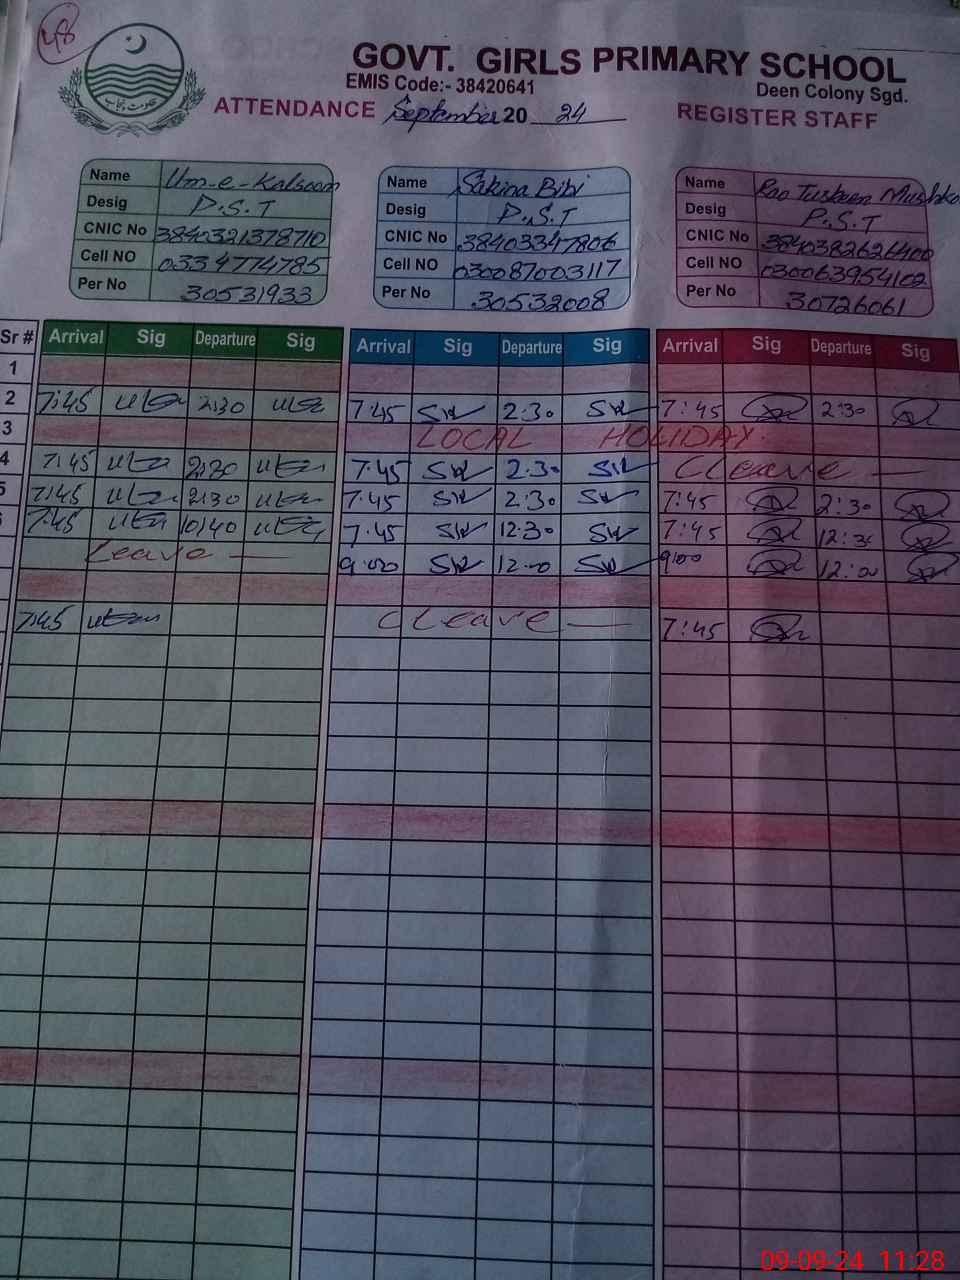 48
حکومت پنجاب
GOVT. GIRLS PRIMARY SCHOOL
EMIS Code:- 38420641
Deen Colony Sgd.
ATTENDANCE September 2024 REGISTER STAFF
Name Um-e-Kalsoom
Desig P.S.T
CNIC No 3840321378710
Cell NO 03347714785
Per No 30531933
Name Sakina Bibi
Desig P.S.T
CNIC No 38403347806
Cell NO 030087003117
Per No 30532008
Name Rao
Desig P.S.T
CNIC No 3840382626400
Cell NO 030063954102
Per No 30726061
Sr # Arrival Sig Departure Sig Arrival Sig Departure Sig Arrival Sig Departure Sig
1
2 7:45 2:30 7:45 2:30 7:45 2:30
3 LOCAL HOLIDAY
4 7:45 2:30 7:45 2:30 C Leave —
5 7:45 2:30 7:45 2:30 7:45 2:30
7:45 10:40 7:45 12:30 7:45 12:30
Leave — 9:00 12:00 9:00 12:00
7:45 C Leave — 7:45
09-09-24 11:28